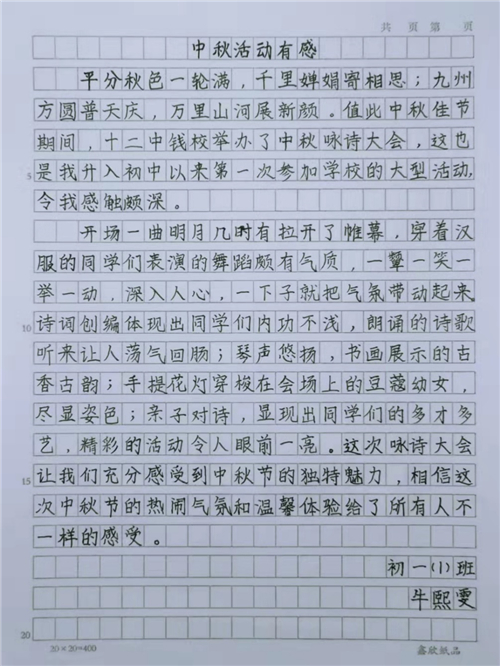 共 页 第 页
中秋活动有感
平分秋色一轮满，千里婵娟寄相思；九州
方圆普天庆，万里山河展新颜。值此中秋佳节
期间，十二中钱校举办了中秋咏诗大会，这也
5
是我升入初中以来第一次参加学校的大型活动，
令我感触颇深。
开场一曲明月几时有拉开了帷幕，穿着汉
服的同学们表演的舞蹈颇有气质，一颦一笑一
举一动，深入人心，一下子就把气氛带动起来
10
诗词创编体现出同学们内功不浅，朗诵的诗歌
听来让人荡气回肠；琴声悠扬，书画展示的古
香古韵；手提花灯穿梭在会场上的豆蔻幼女，
尽显姿色；亲子对诗，显现出同学们的多才多
艺，精彩的活动令人眼前一亮。这次咏诗大会
15
让我们充分感受到中秋节的独特魅力，相信这
次中秋节的热闹气氛和温馨体验给了所有人不
一样的感受。
初一(1)班
牛熙雯
20
20×20=400
鑫欣纸品